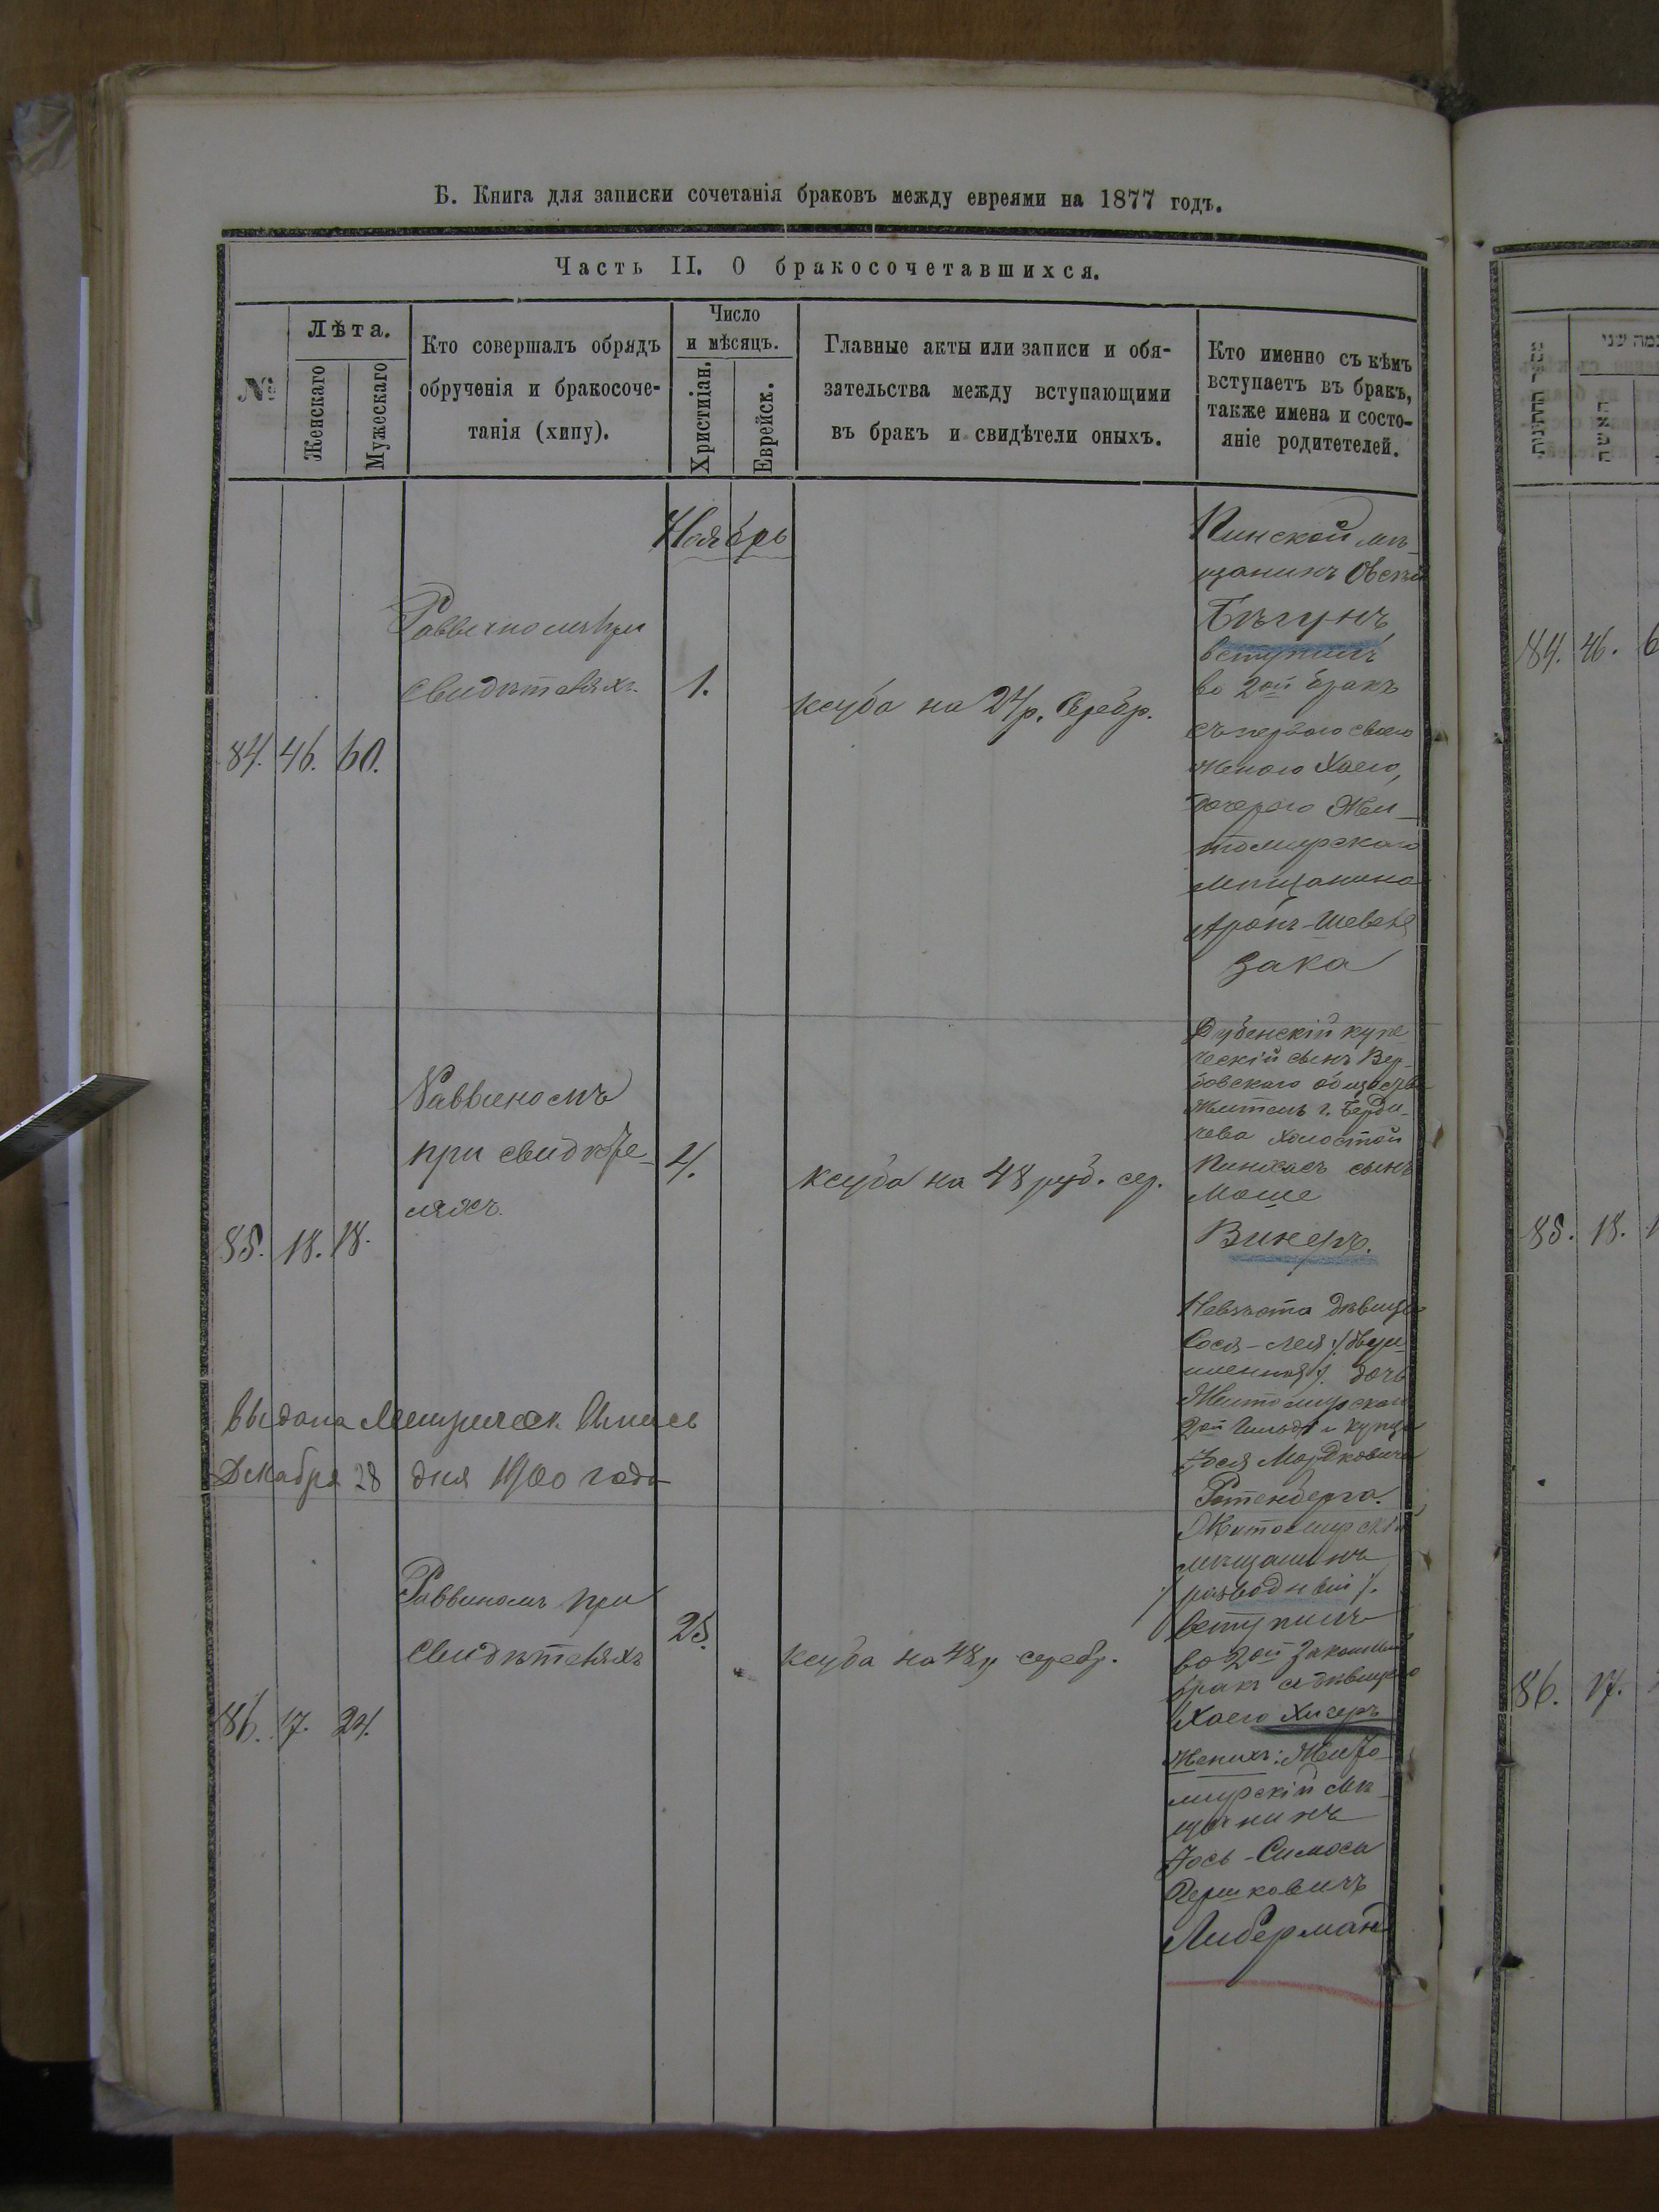 Б. Книга для записки сочетанія браковъ между евреями на 1877 годъ.
Часть II. О бракосочетавшихся.
№
Лѣта.
Женскаго
Мужескаго
Кто совершалъ обрядъ
обрученія и бракосоче-
танія (хипу).
Число
и мѣсяцъ.
Христіан.
Еврейск.
Главные акты или записи и обя-
зательства между вступающими
въ бракъ и свидѣтели оныхъ.
Кто именно съ кѣмъ
вступаетъ въ бракъ,
также имена и состо-
яніе родитетелей.
Ноябрь
84. 46. 60.
Раввиномъ при
свидѣтеляхъ.
1.
ксуба на 24 р. серебр.
Пинской мѣ-
щанинъ
Бѣгунъ
вступилъ
во 2ой бракъ
съ первою своею
женою Хаею,
дочерью Жи-
томирского
мѣщанина
Аронъ-Шевеля
Зака
85. 18. 18.
Раввиномъ
при свидѣте-
ляхъ.
4.
ксуба на 48 руб. сер.
купе-
ческій сынъ Вер-
бовскаго общества
житель г. Берди-
чева холостой
Пинхасъ сынъ
Моше
Винеръ.
Невѣста дѣвица
Сося-Лея
дочь
Житомирскаго
2ой гильдіи купца
Іося Мордковича
Ротенберга.
Выдана Метрическ. Выпись
Декабря 28 дня 1900 года
86. 17. 24.
Раввиномъ при
свидѣтеляхъ
25.
ксуба на 48 р серебр.
Житомирскій
мѣщанинъ
/разводный/.
вступилъ
во 2ой законный
бракъ съ дѣвицею
Хаею Хигеръ
Женихъ: Жито-
мирскій мѣ-
щанинъ
Іось-Симха
Гершковичъ
Либерманъ
84. 46. 6
85. 18. 1
86. 17.